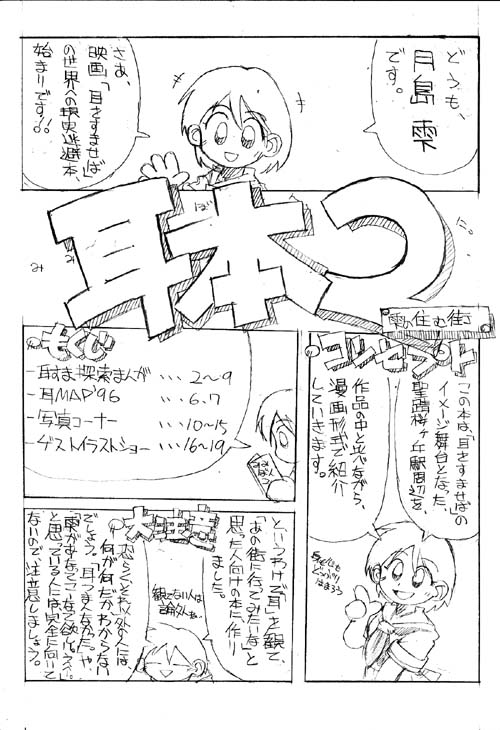 どうも、
月島 雫
です。
さあ、
映画「耳をすませば」
の世界への現実逃避本、
始まりです!!
耳本つ
み
み
ぼ
に。
雫の住む街
コンセプト
この本は、「耳をすませば」の
イメージ舞台となった、
聖蹟桜ヶ丘駅周辺を、
作品の中と比べながら、
漫画形式で紹介
していきます。
もくじ
-耳すま探索まんが ... 2〜9
-耳MAP'96 ... 6.7
-写真コーナー ... 10〜15
-ゲストイラストショー ... 16〜19
大注意
というわけで「耳」を観て、
「あの街に行ってみたいなー」と
思った人向けの本に、作り
ました。
観てない人は
論外ネ。
恐らくそれ以外の人には、
何が何だかわからない
でしょう。「耳つまんなかった」や
「雫がおなっこーなて欲しいっ!」
と思っている人には完全に向いて
ないので、注意しましょう。